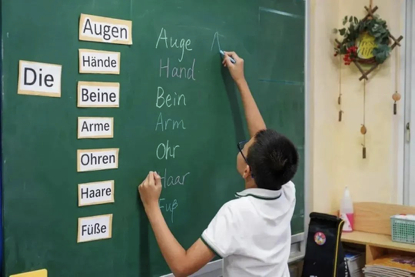 Die
Augen
Hände
Beine
Arme
Ohren
Haare
Füße
Auge
Hand
Bein
Arm
Ohr
Haar
Fuß